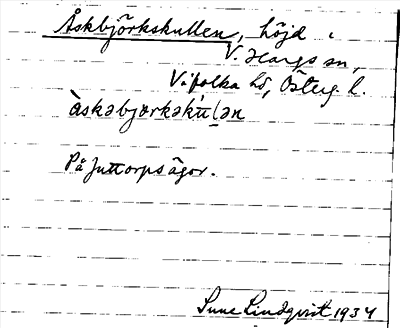 Åskbjörkskullen, höjd i
V. Hargs sn,
Vifolka hd, Österg. l.
àskəbjœrkəkúlən
På Juttorps ägor.
Sune Lindqvist 1934